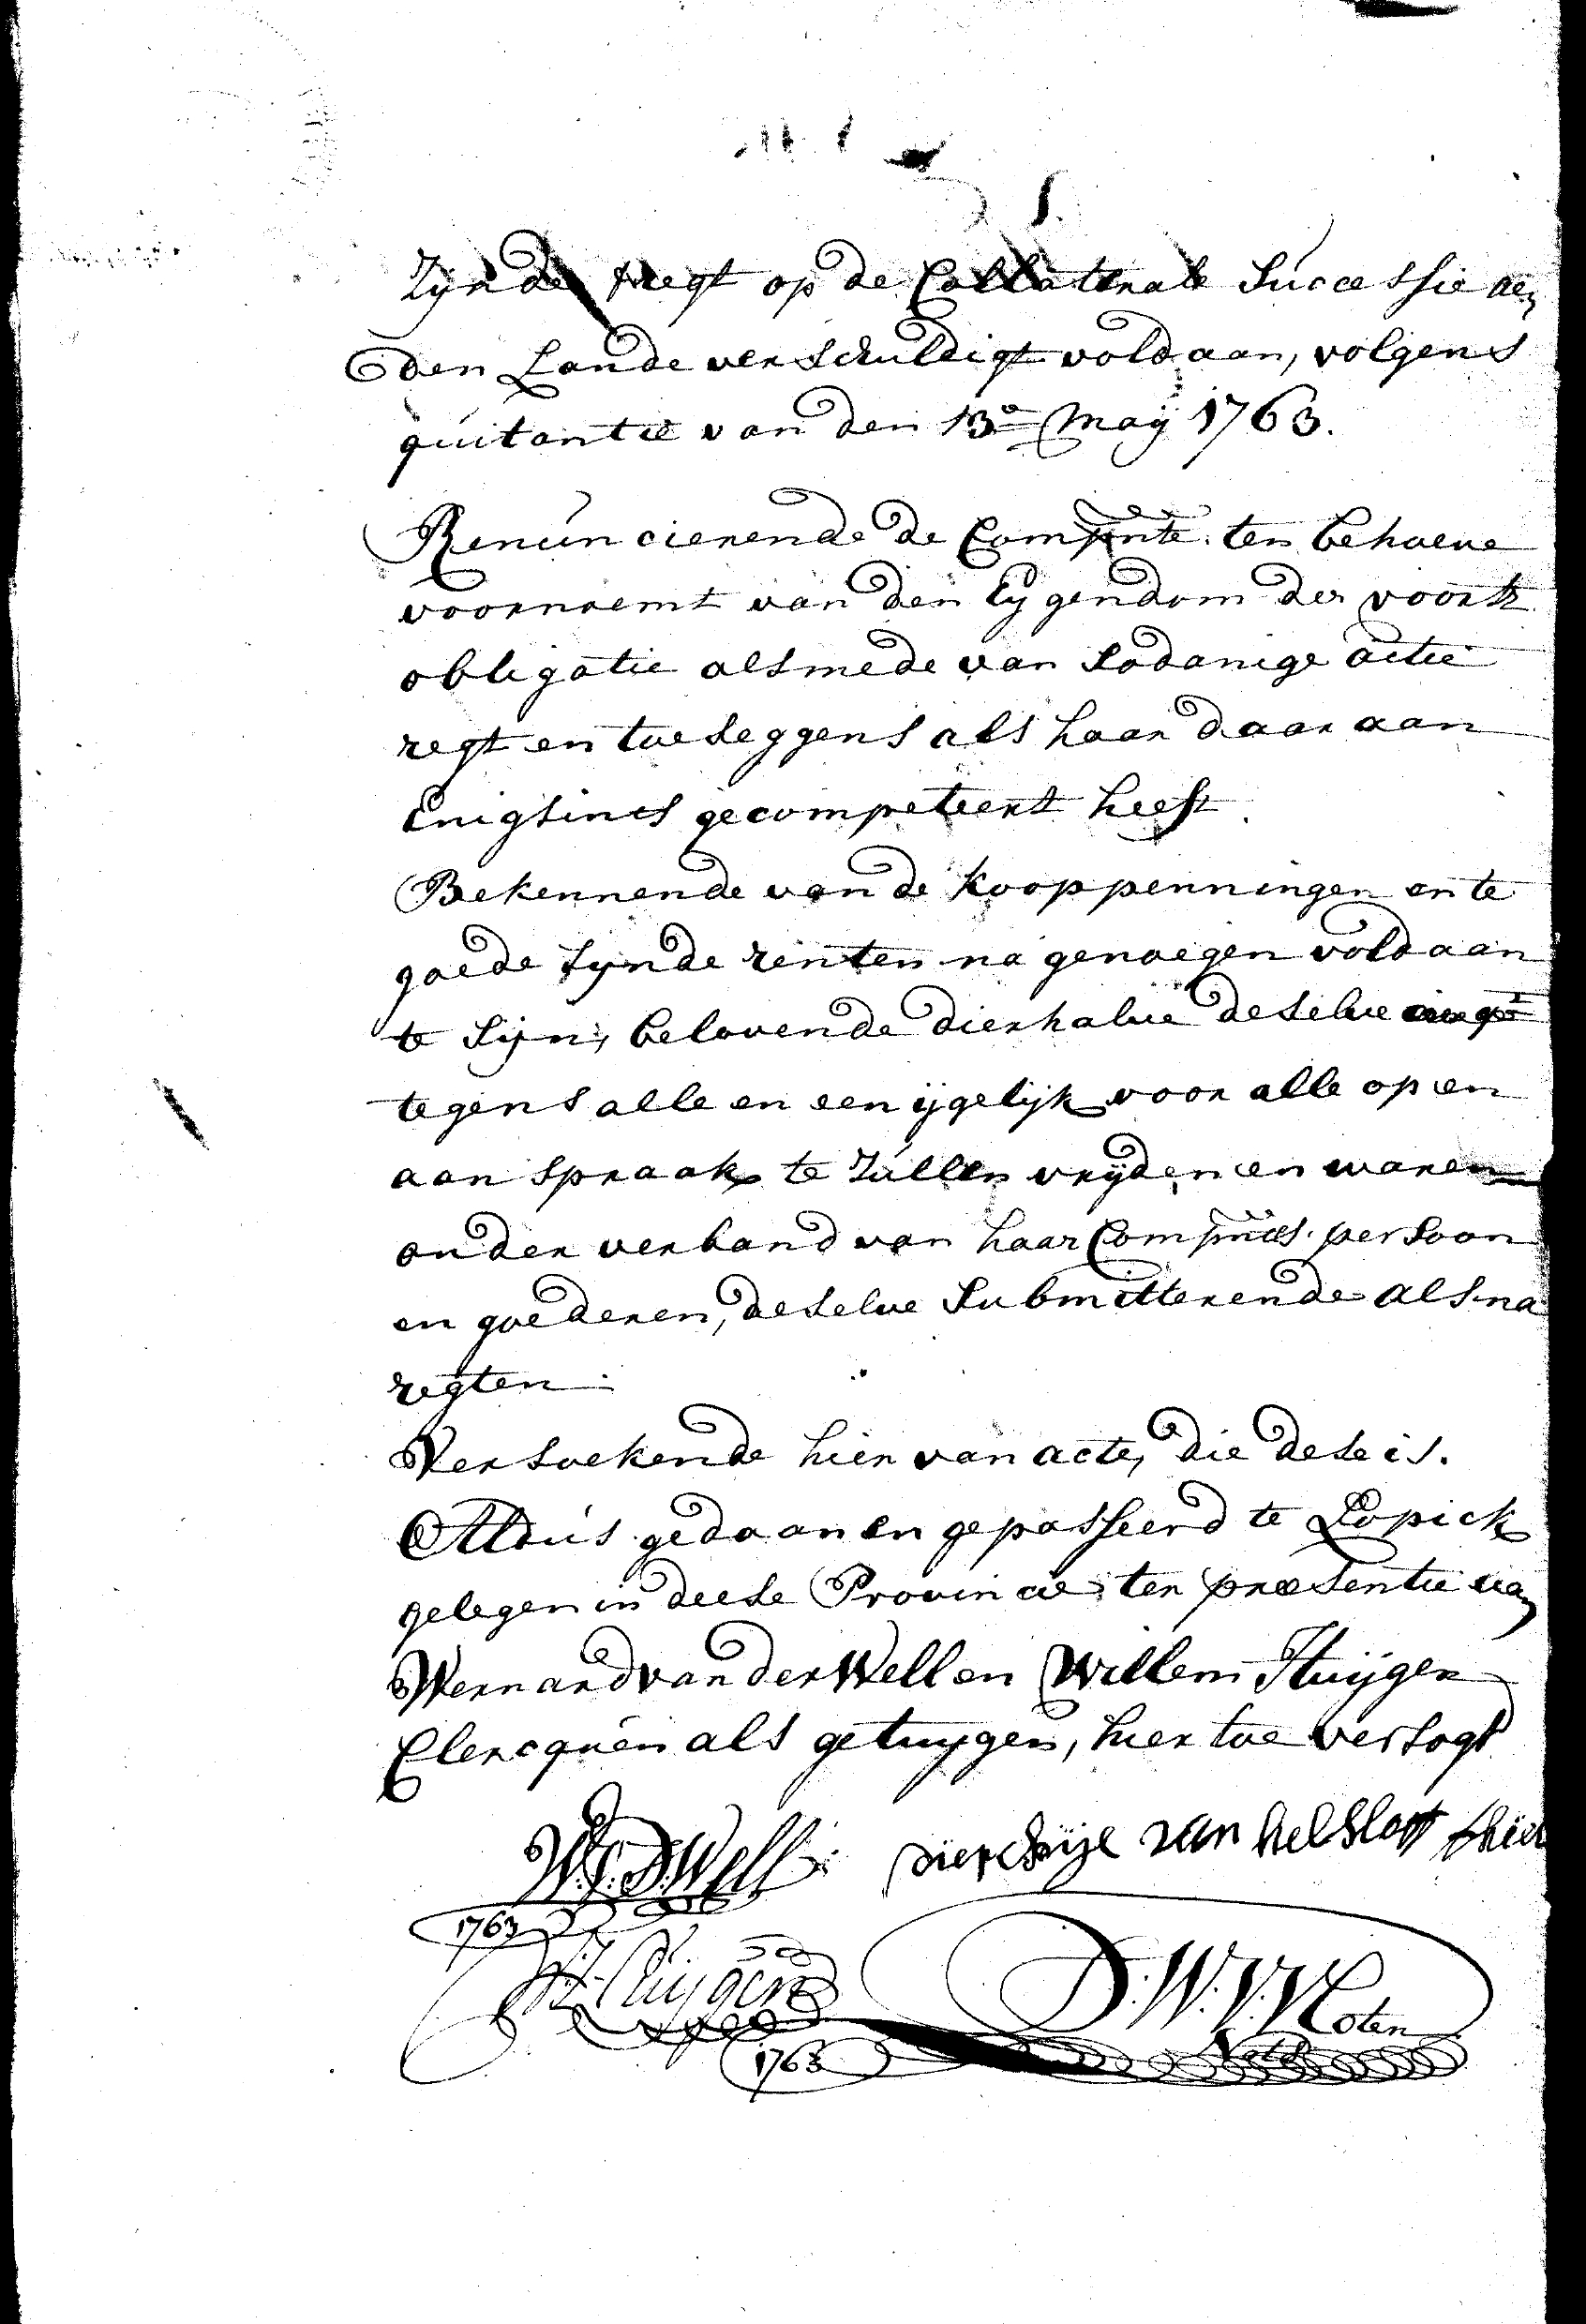 Zijnde 't regt op de Collaterale Successie aen
den Lande verschuldigt voldaan, volgens
quitantie van den 13e Maij 1763.
Renuncierende de Compnte. ten behoeve
voornoemt van den Eijgendom der voorsz
obligatie alsmede van sodanige actie
regt en toeseggens als haar daar aan
Enigsints gecompeteert heeft.
Bekennende van de kooppenningen en te
goede sijnde renten na genoegen voldaan
te sijn, belovende dierhalve deselve
tegens alle en een ijgelijk voor alle op en
aanspraak te zullen vrijden en waren
onder verband van haar Compntes. persoon
en goederen, deselve submitterende als na
regten.
Versoekende hier van acte, die dese is.
Aldus gedaan en gepasseerd te Lopick
gelegen in deese Provincie ter presentie van
Wernard van der Well en Willem Huijgen
Clercquen als getuijgen, hier toe versogt
W. V. D. Well
dierckije van helsloot
1763
W. Huijgen
D. W. V. Vloten
Nots
1763